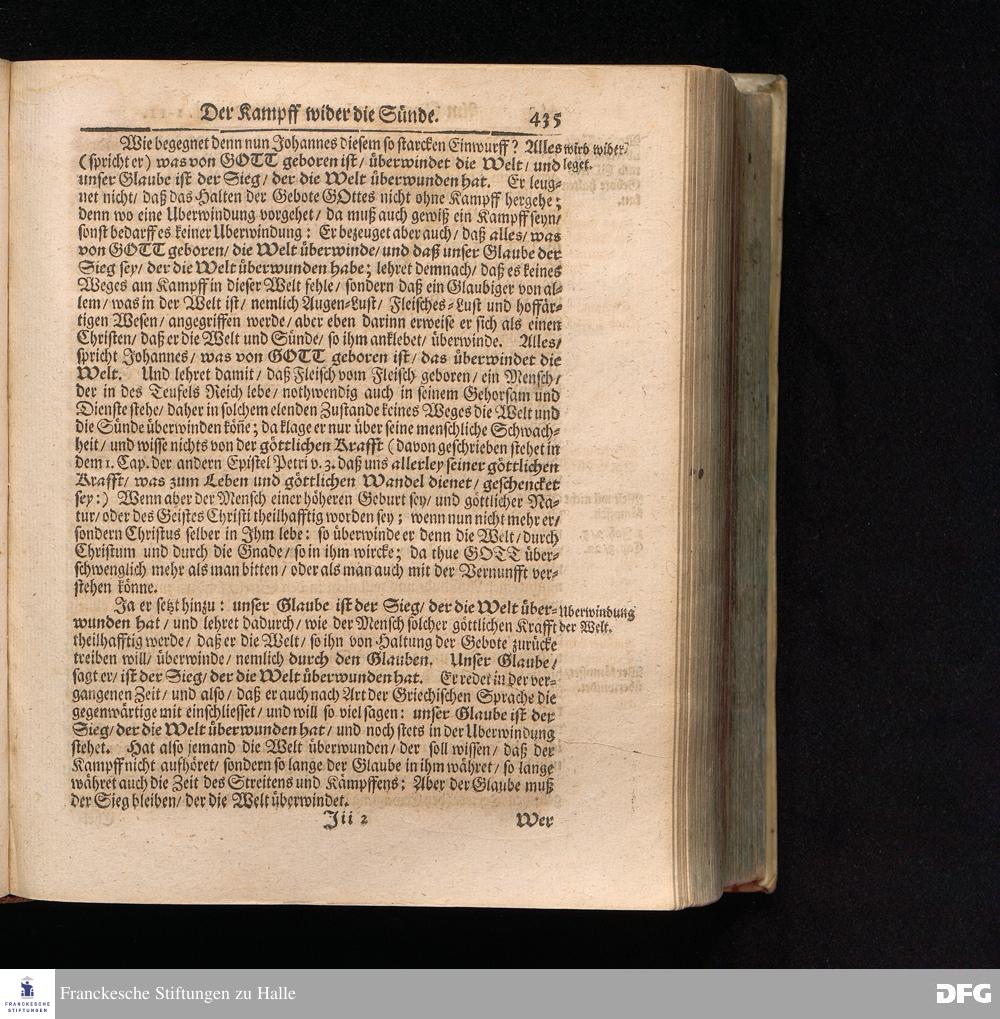 Der Kampff wider die Sünde. 435
Wie begegnet denn nun Johannes diesem so starcken Einwurff? Alles
(spricht er) was von GOTT geboren ist/ überwindet die Welt/ und
unser Glaube ist der Sieg/ der die Welt überwunden hat. Er leug-
net nicht/ daß das Halten der Gebote GOttes nicht ohne Kampff hergehe;
denn wo eine Uberwindung vorgehet/ da muß auch gewiß ein Kampff seyn/
sonst bedarff es keiner Uberwindung: Er bezeuget aber auch/ daß alles/ was
von GOTT geboren/ die Welt überwinde/ und daß unser Glaube der
Sieg sey/ der die Welt überwunden habe; lehret demnach/ daß es keines
Weges am Kampff in dieser Welt fehle/ sondern daß ein Glaubiger von al-
lem/ was in der Welt ist/ nemlich Augen-Lust/ Fleisches-Lust und hoffär-
tigen Wesen/ angegriffen werde/ aber eben darinn erweise er sich als einen
Christen/ daß er die Welt und Sünde/ so ihm anklebet/ überwinde. Alles/
spricht Johannes/ was von GOTT geboren ist/ das überwindet die
Welt. Und lehret damit/ daß Fleisch vom Fleisch geboren/ ein Mensch/
der in des Teufels Reich lebe/ nothwendig auch in seinem Gehorsam und
Dienste stehe/ daher in solchem elenden Zustande keines Weges die Welt und
die Sünde überwinden köñe; da klage er nur über seine menschliche Schwach-
heit/ und wisse nichts von der göttlichen Krafft (davon geschrieben stehet in
dem 1. Cap. der andern Epistel Petri v. 3. daß uns allerley seiner göttlichen
Krafft/ was zum Leben und göttlichen Wandel dienet/ geschencket
sey:) Wenn aber der Mensch einer höheren Geburt sey/ und göttlicher Na-
tur/ oder des Geistes Christi theilhafftig worden sey; wenn nun nicht mehr er/
sondern Christus selber in Ihm lebe: so überwinde er denn die Welt/ durch
Christum und durch die Gnade/ so in ihm wircke; da thue GOTT über-
schwenglich mehr als man bitten/ oder als man auch mit der Vernunfft ver-
stehen könne.
Ja er setzt hinzu: unser Glaube ist der Sieg/ der die Welt über-
wunden hat/ und lehret dadurch/ wie der Mensch solcher göttlichen Krafft
theilhafftig werde/ daß er die Welt/ so ihn von Haltung der Gebote zurücke
treiben will/ überwinde/ nemlich durch den Glauben. Unser Glaube/
sagt er/ ist der Sieg/ der die Welt überwunden hat. Er redet in der ver-
gangenen Zeit/ und also/ daß er auch nach Art der Griechischen Sprache die
gegenwärtige mit einschliesset/ und will so viel sagen: unser Glaube ist der
Sieg/ der die Welt überwunden hat/ und noch stets in der Uberwindung
stehet. Hat also jemand die Welt überwunden/ der soll wissen/ daß der
Kampff nicht aufhöret/ sondern so lange der Glaube in ihm währet/ so lange
währet auch die Zeit des Streitens und Kämpffens: Aber der Glaube muß
der Sieg bleiben/ der die Welt überwindet.
Jii 2 Wer
wird wider-
leget.
Uberwindung
der Welt.
FRANCKESCHE
STIFTUNGEN
Franckesche Stiftungen zu Halle
DFG